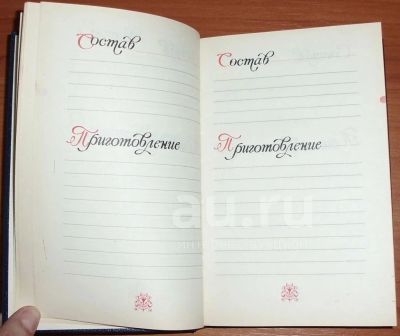 Состав
Приготовление
Состав
Приготовление
au.ru